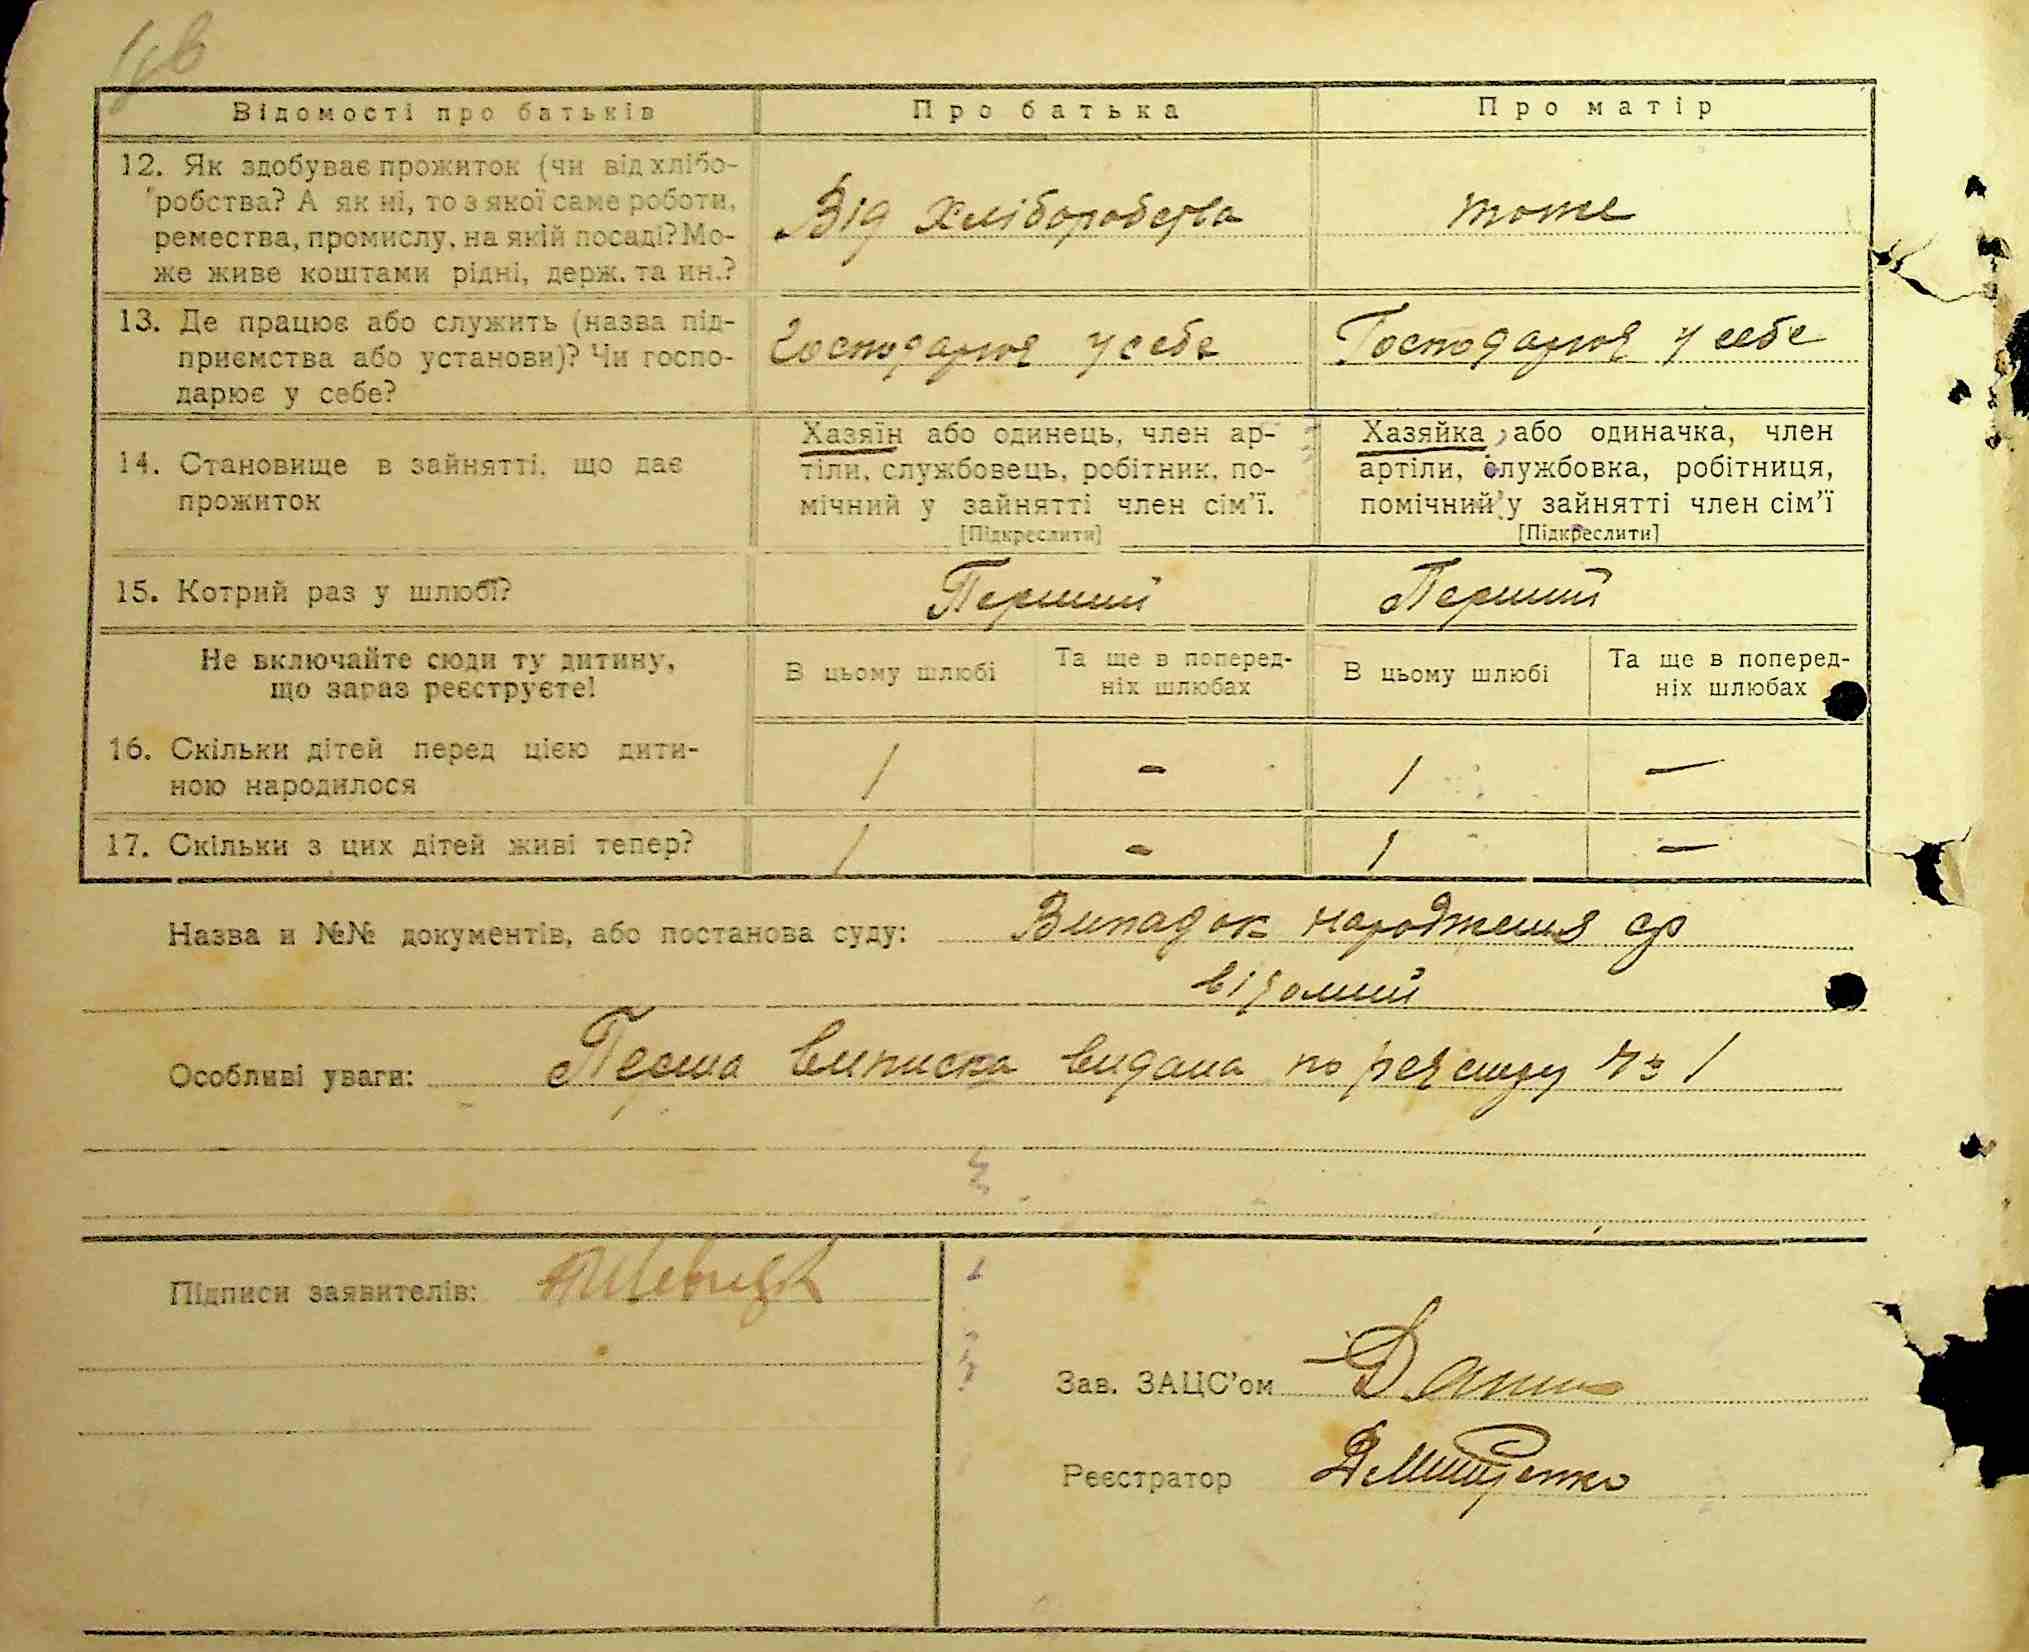 Відомості про батьків
Про батька
Про матір
12. Як здобуває прожиток (чи від хлібо-
робства? А як ні, то з якої саме роботи,
ремества, промислу, на якій посаді? Мо-
же живе коштами рідні, держ. та ин.?
Від хліборобства
тоже
13. Де працює або служить (назва під-
приємства або установи)? Чи госпо-
дарює у себе?
Господарює у себе
Господарює у себе
14. Становище в зайнятті, що дає
прожиток
Хазяїн або одинець, член ар-
тіли, службовець, робітник, по-
мічний у зайнятті член сім'ї.
[Підкреслити]
Хазяйка, або одиначка, член
артіли, службовка, робітниця,
помічний у зайнятті член сім'ї
[Підкреслити]
15. Котрий раз у шлюбі?
Перший
Перший
Не включайте сюди ту дитину,
що зараз реєструєте!
В цьому шлюбі
Та ще в поперед-
ніх шлюбах
В цьому шлюбі
Та ще в поперед-
ніх шлюбах
16. Скільки дітей перед цією дити-
ною народилося
1
-
1
-
17. Скільки з цих дітей живі тепер?
1
-
1
-
Назва и №№ документів, або постанова суду: Випадок народження
відомий
Особливі уваги: Перша виписка видана по реєстру № 1
Підписи заявителів:
Зав. ЗАЦС'ом
Реєстратор